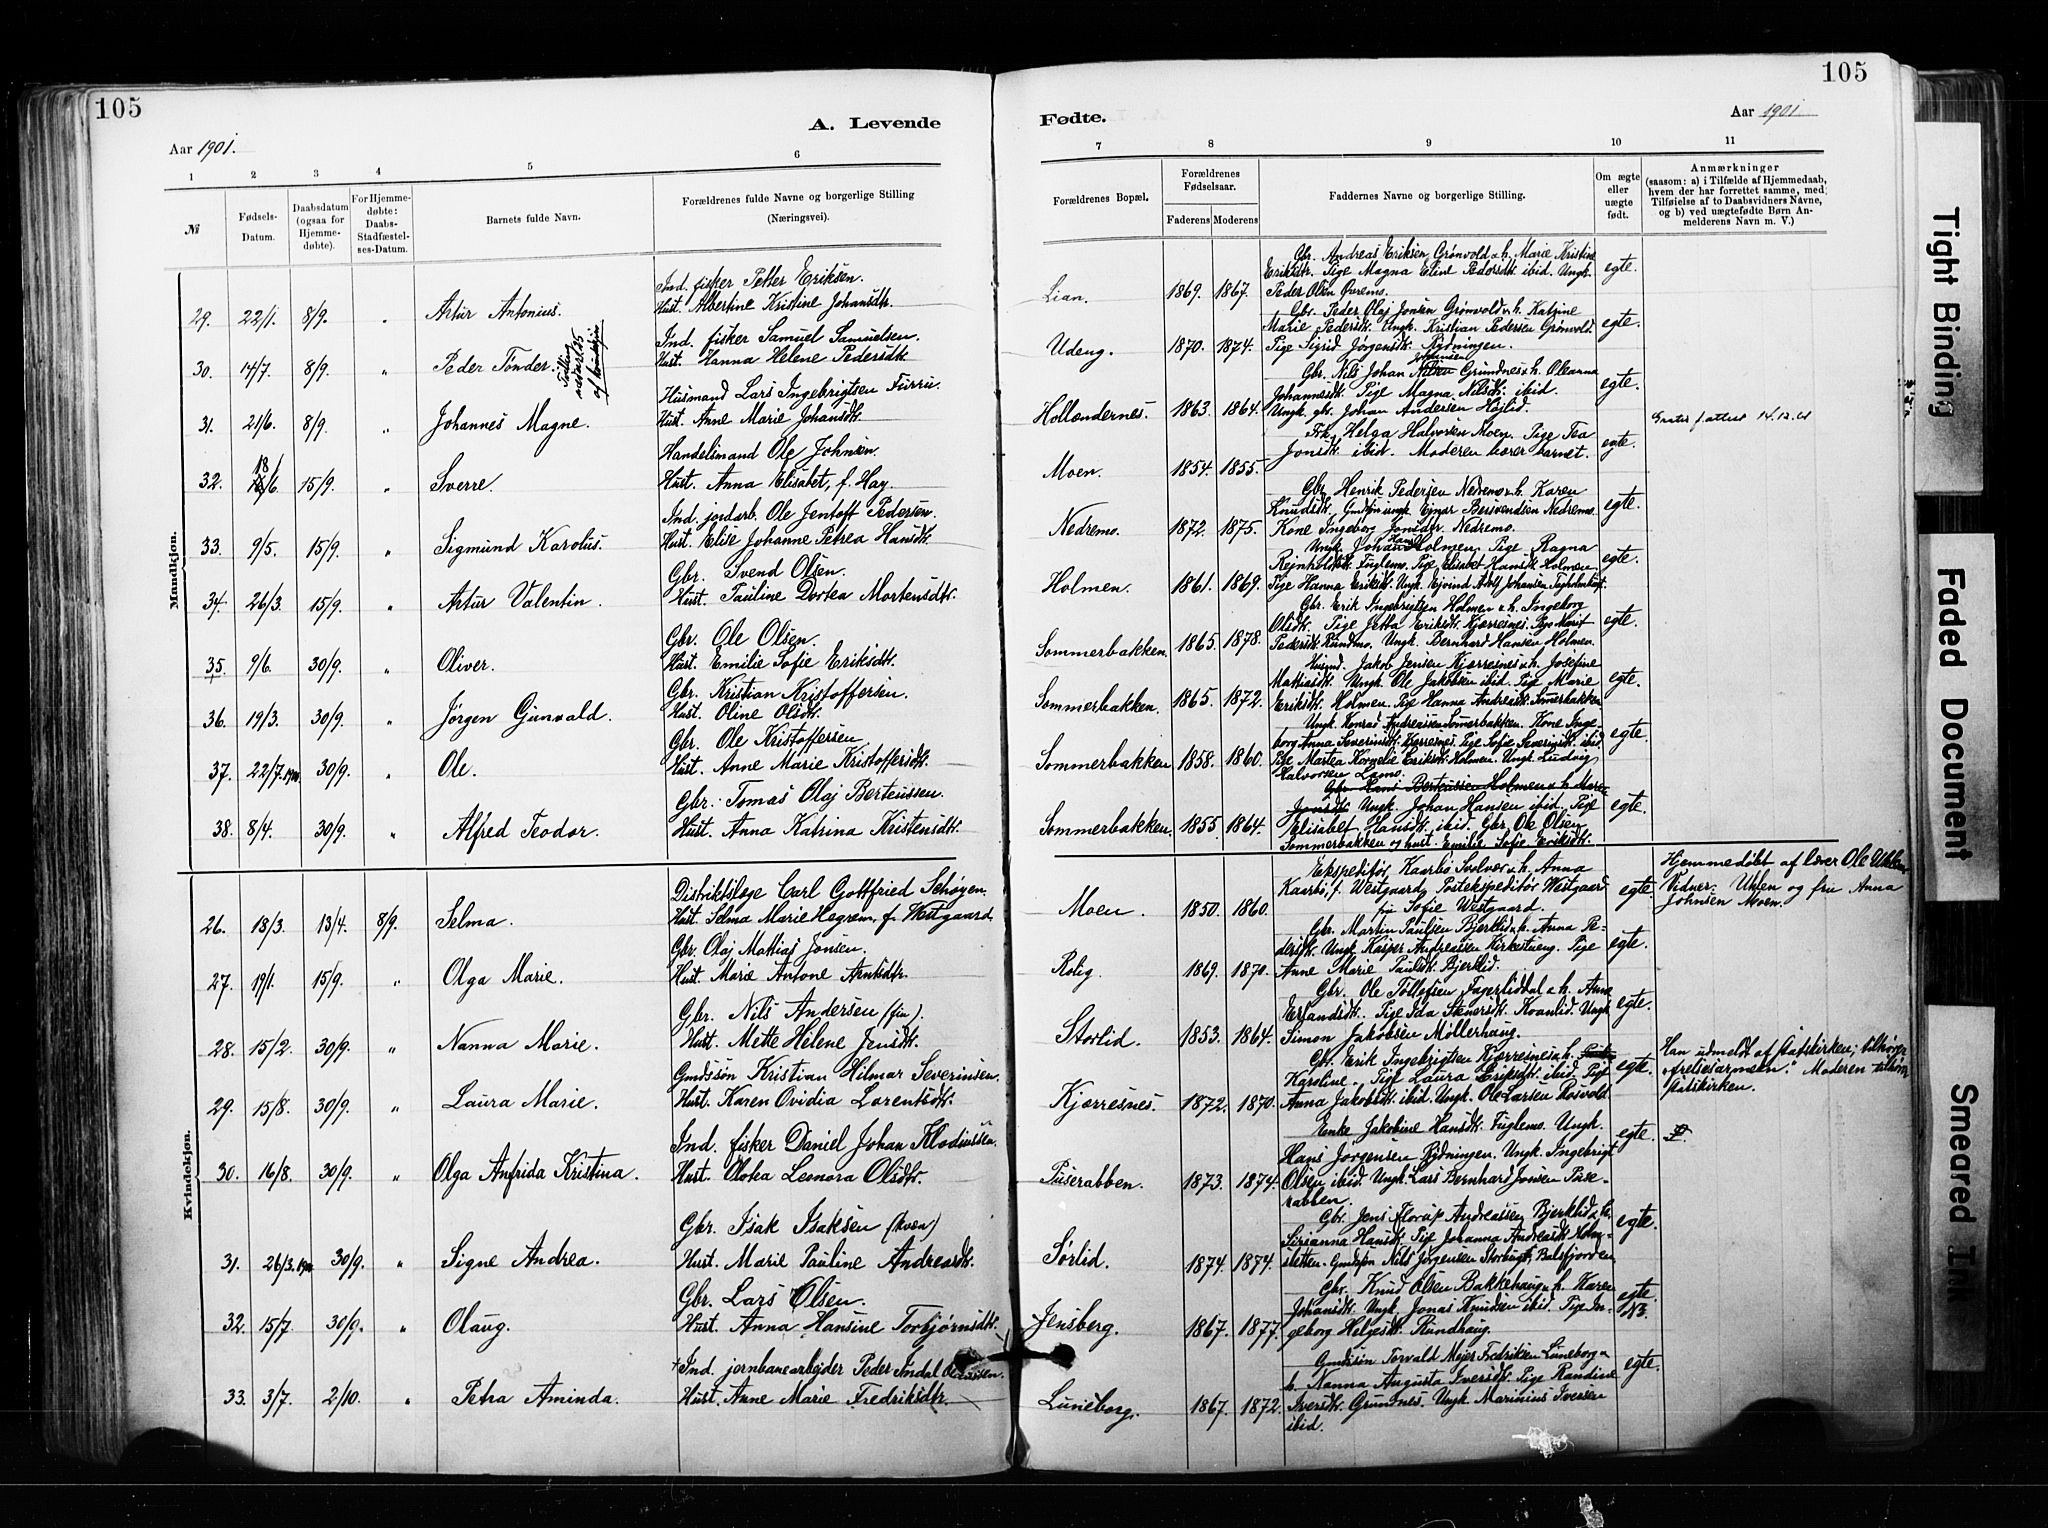 105
105
A. Levende
Fødte.
Aar 1901.
Aar 1901
1 2 3 4 5 6
7 8 9 10 11
№
Fødsels-Datum.
Daabsdatum (ogsaa for Hjemmedøbte).
For Hjemmedøbte: Daabs-Stadfæstelses-Datum.
Barnets fulde Navn.
Forældrenes fulde Navne og borgerlige Stilling (Næringsvei).
Forældrenes Bopæl.
Forældrenes Fødselsaar.
Faderens Moderens
Faddernes Navne og borgerlige Stilling.
Om ægte eller uægte født.
Anmærkninger
(saasom: a) i Tilfælde af Hjemmedaab, hvem der har forrettet samme, med Tilføielse af to Daabsvidners Navne, og b) ved uægtefødte Børn Anmelderens Navn m. V.)
Mandkjøn.
29. 22/1. 8/9. " Artur Antonius. Ind. fisker Petter Eriksen. Hust. Albertine Kristine Johansdtr.
Lian. 1869. 1867. Gbr. Andreas Eriksen Grønvold & h. Marie Kristine Eriksdtr. Pige Magna Eline Pedersdtr. ibid. Ungk. Peder Olsen Øvremo. egte.
30. 14/7. 8/9. " Peder Tönder. Ind. fisker Samuel Samuelsen. Hust. Hanna Helene Pedersdtr
Tvilling nedenfor af kvindekjøn
Udeng. 1870. 1874. Gbr. Peder Olaj Jonsen Grønvold & h. Katrine Marie Pedersdtr. Ungk. Kristian Pedersen Grønvold. Pige Sigrid Jørgensdtr. Rydningen. egte.
31. 21/6. 8/9. " Johannes Magne. Husmand Lars Ingebrigtsen Furru. Hust. Anne Marie Johansdtr.
Hollendernes. 1863. 1864. Gbr. Nils Johan Johnsen Grundnes & h. Oleanna Johannesdtr. Pige Magna Nilsdtr. ibid. Ungk. gbr. Johan Andersen Højlid. egte.
attest 14.12.61
32. 18/6. 15/9. " Sverre. Handelsmand Ole Johnsen. Hust. Anna Elisabet, f. Hay.
Moen. 1854. 1855. Frk. Helga Halvorsen Moen. Pige Tea Jonsdtr. ibid. Moderen bærer barnet. egte.
33. 9/5. 15/9. " Sigmund Karolus. Ind. jordarb. Ole Jentoft Pedersen. Hust. Elise Johanne Petrea Hansdtr.
Nedremo. 1872. 1875. Gbr. Henrik Pedersen Nedremo & h. Karen Knudsdtr. Ejnar Bersvendsen Nedremo. Kone Ingeborg Jonsdtr. Nedremo. egte.
34. 26/3. 15/9. " Artur Valentin. Gbr. Svend Olsen. Hust. Pauline Dortea Mortensdtr.
Holmen. 1861. 1869. Ungk. Johan Holmen. Pige Ragna Rejnholdtdtr. Fuglemo. Pige Elisabet Hansdtr. Holmen. Pige Hanna Eriksdtr. Ungk. Ejvind Adolf Johansen egte.
35. 9/6. 30/9. " Oliver. Gbr. Ole Olsen. Hust. Emilie Sofie Eriksdtr.
Sommerbakken. 1865. 1878. Gbr. Erik Ingebrigtsen Holmen & h. Ingeborg Olsdtr. Pige Jetta Eriksdtr. Kjærresnes. Pige Marit Pedersdtr. Rundmo. Ungk. Bernhard Hansen Holmen. egte.
36. 19/3. 30/9. " Jørgen Gunvald. Gbr. Kristian Kristoffersen. Hust. Oline Olsdtr.
Sommerbakken. 1865. 1872. Husmd. Jakob Jensen Kjærresnes & h. Josefine Mathiasdtr. Ungk. Ole Jakobsen ibid. Pige Marie Eriksdtr. Holmen. Pige Hanna Andreasdtr. Sommerbakken egte.
37. 22/7. 30/9. " Ole. Gbr. Ole Kristoffersen Hust. Anne Marie Kristoffersdtr.
Sommerbakken 1858. 1860. Ungk. Konrad Andreassen Sommerbakken. Kone Ingeborg Anna Severinsdtr. Kjærresnes. Pige Sofie Severinsdtr. ibid. Pige Martea Kornelie Eriksdtr. Holmen. Ungk. Ludvig Halvorsen Lamo. egte.
38. 8/4. 30/9. " Alfred Teodor. Gbr. Tomas Olaj Berteussen. Hust. Anna Katrina Kristensdtr.
Sommerbakken. 1855. 1864. Gbr. Hans Berteussen Holmen & h. Jonsdtr. Ungk. Johan Hansen ibid. Pige Elisabet Hansdtr. ibid. Gbr. Ole Olsen Sommerbakken og hust. Emilie Sofie Eriksdtr. egte.
Kvindekjøn.
26. 18/3. 13/4. 8/9. Selma. Distriktslege Carl Gottfried Schøyen. Hust. Selma Marie Hegrem, f. Westgaard.
Moen. 1850. 1860. Ekspeditør Kaarbø Svolvær & h. Anna Kaarbø, f. Westgaard, Postekspeditør Westgaard fru Sofie Westgaard. egte. Hjemmedøbt af lærer Ole Uhlen Vidner: Uhlen og fru Anna Johnsen Moen.
27. 19/1. 15/9. " Olga Marie. Gbr. Olaj Mattias Jonsen. Hust. Marie Antone Arntsdtr.
Rolig. 1869. 1870. Gbr. Martin Paulsen Bjerklid & h. Anna Pedersdtr. Ungk. Kasper Andreassen Kirkestueng. Pige Anne Marie Paulsdtr. Bjerklid. egte.
28. 15/2. 30/9. " Nanna Marie. Gbr. Nils Andersen (fin). Hust. Mette Helene Jensdtr.
Storlid. 1853. 1864. Gbr. Ole Tollefsen Fagerliddal & h. Anne Erlandsdtr. Pige Ida Stenersdtr. Kvanlid. Ungk Simon Jakobsen Møllerhaug. egte.
29. 15/8. 30/9. " Laura Marie. Gmdssøn Kristian Hilmar Severinsen. Hust. Karen Ovidia Lorentsdtr.
Kjærresnes. 1872. 1870. Gbr. Erik Ingebrigtsen Kjærresnes & h. Karoline. Pige Laura Eriksdtr. ibid. Pige Anna Jakobsdtr. ibid. Ungk. Ole Larsen Rosvold. egte. Han udmeldt af statskirken; tilhører "frelsesarmeen." Moderen tilhører statskirken.
30. 16/8. 30/9. " Olga Anfrida Kristina. Ind. fisker Daniel Johan Klodiussen. Hust. Olotea Leonora Olsdtr.
Puserabben. 1873. 1874. Enke Jakobine Hansdtr. Fuglemo. Ungk. Hans Jørgensen Rydningen. Ungk. Ingebrigt Olsen ibid. Ungk. Lars Bernhard Jonsen Puserabben. egte.
31. 26/3. 30/9. " Signe Andrea. Gbr. Isak Isaksen (kvæn) Hust. Marie Pauline Andreasdtr.
Sørlid. 1874. 1874. Gbr. Jens Florup Andreassen Bjerklid & h. Sirianna Hansdtr. Pige Johanna Andreasdtr. Holmsletten. Gmdssøn Nils Jørgensen Storbugt, Balsfjorden egte.
32. 15/7. 30/9. " Olaug. Gbr. Lars Olsen. Hust. Anna Hansine Torbjørnsdtr.
Jensberg. 1867. 1877. Gbr. Knud Olsen Bakkehaug & h. Karen Johansdtr. Ungk. Jonas Knudsen ibid. Pige Ingeborg Helgesdtr. Rundhaug. egte. NB.
33. 3/7. 2/10. " Petra Aminda. Ind. jernbanearbejder Peder Andal Hust. Anne Marie Fredriksdtr.
Luneborg. 1867. 1872. Gmdssøn Torvald Mejer Fredriksen Luneborg & h. Nanna Augusta Iversdtr. Pige Randine Iversdtr. Grundnes. Ungk. Marinius Iversen ibid. egte.
Tight Binding
Faded Document
Smeared Ink